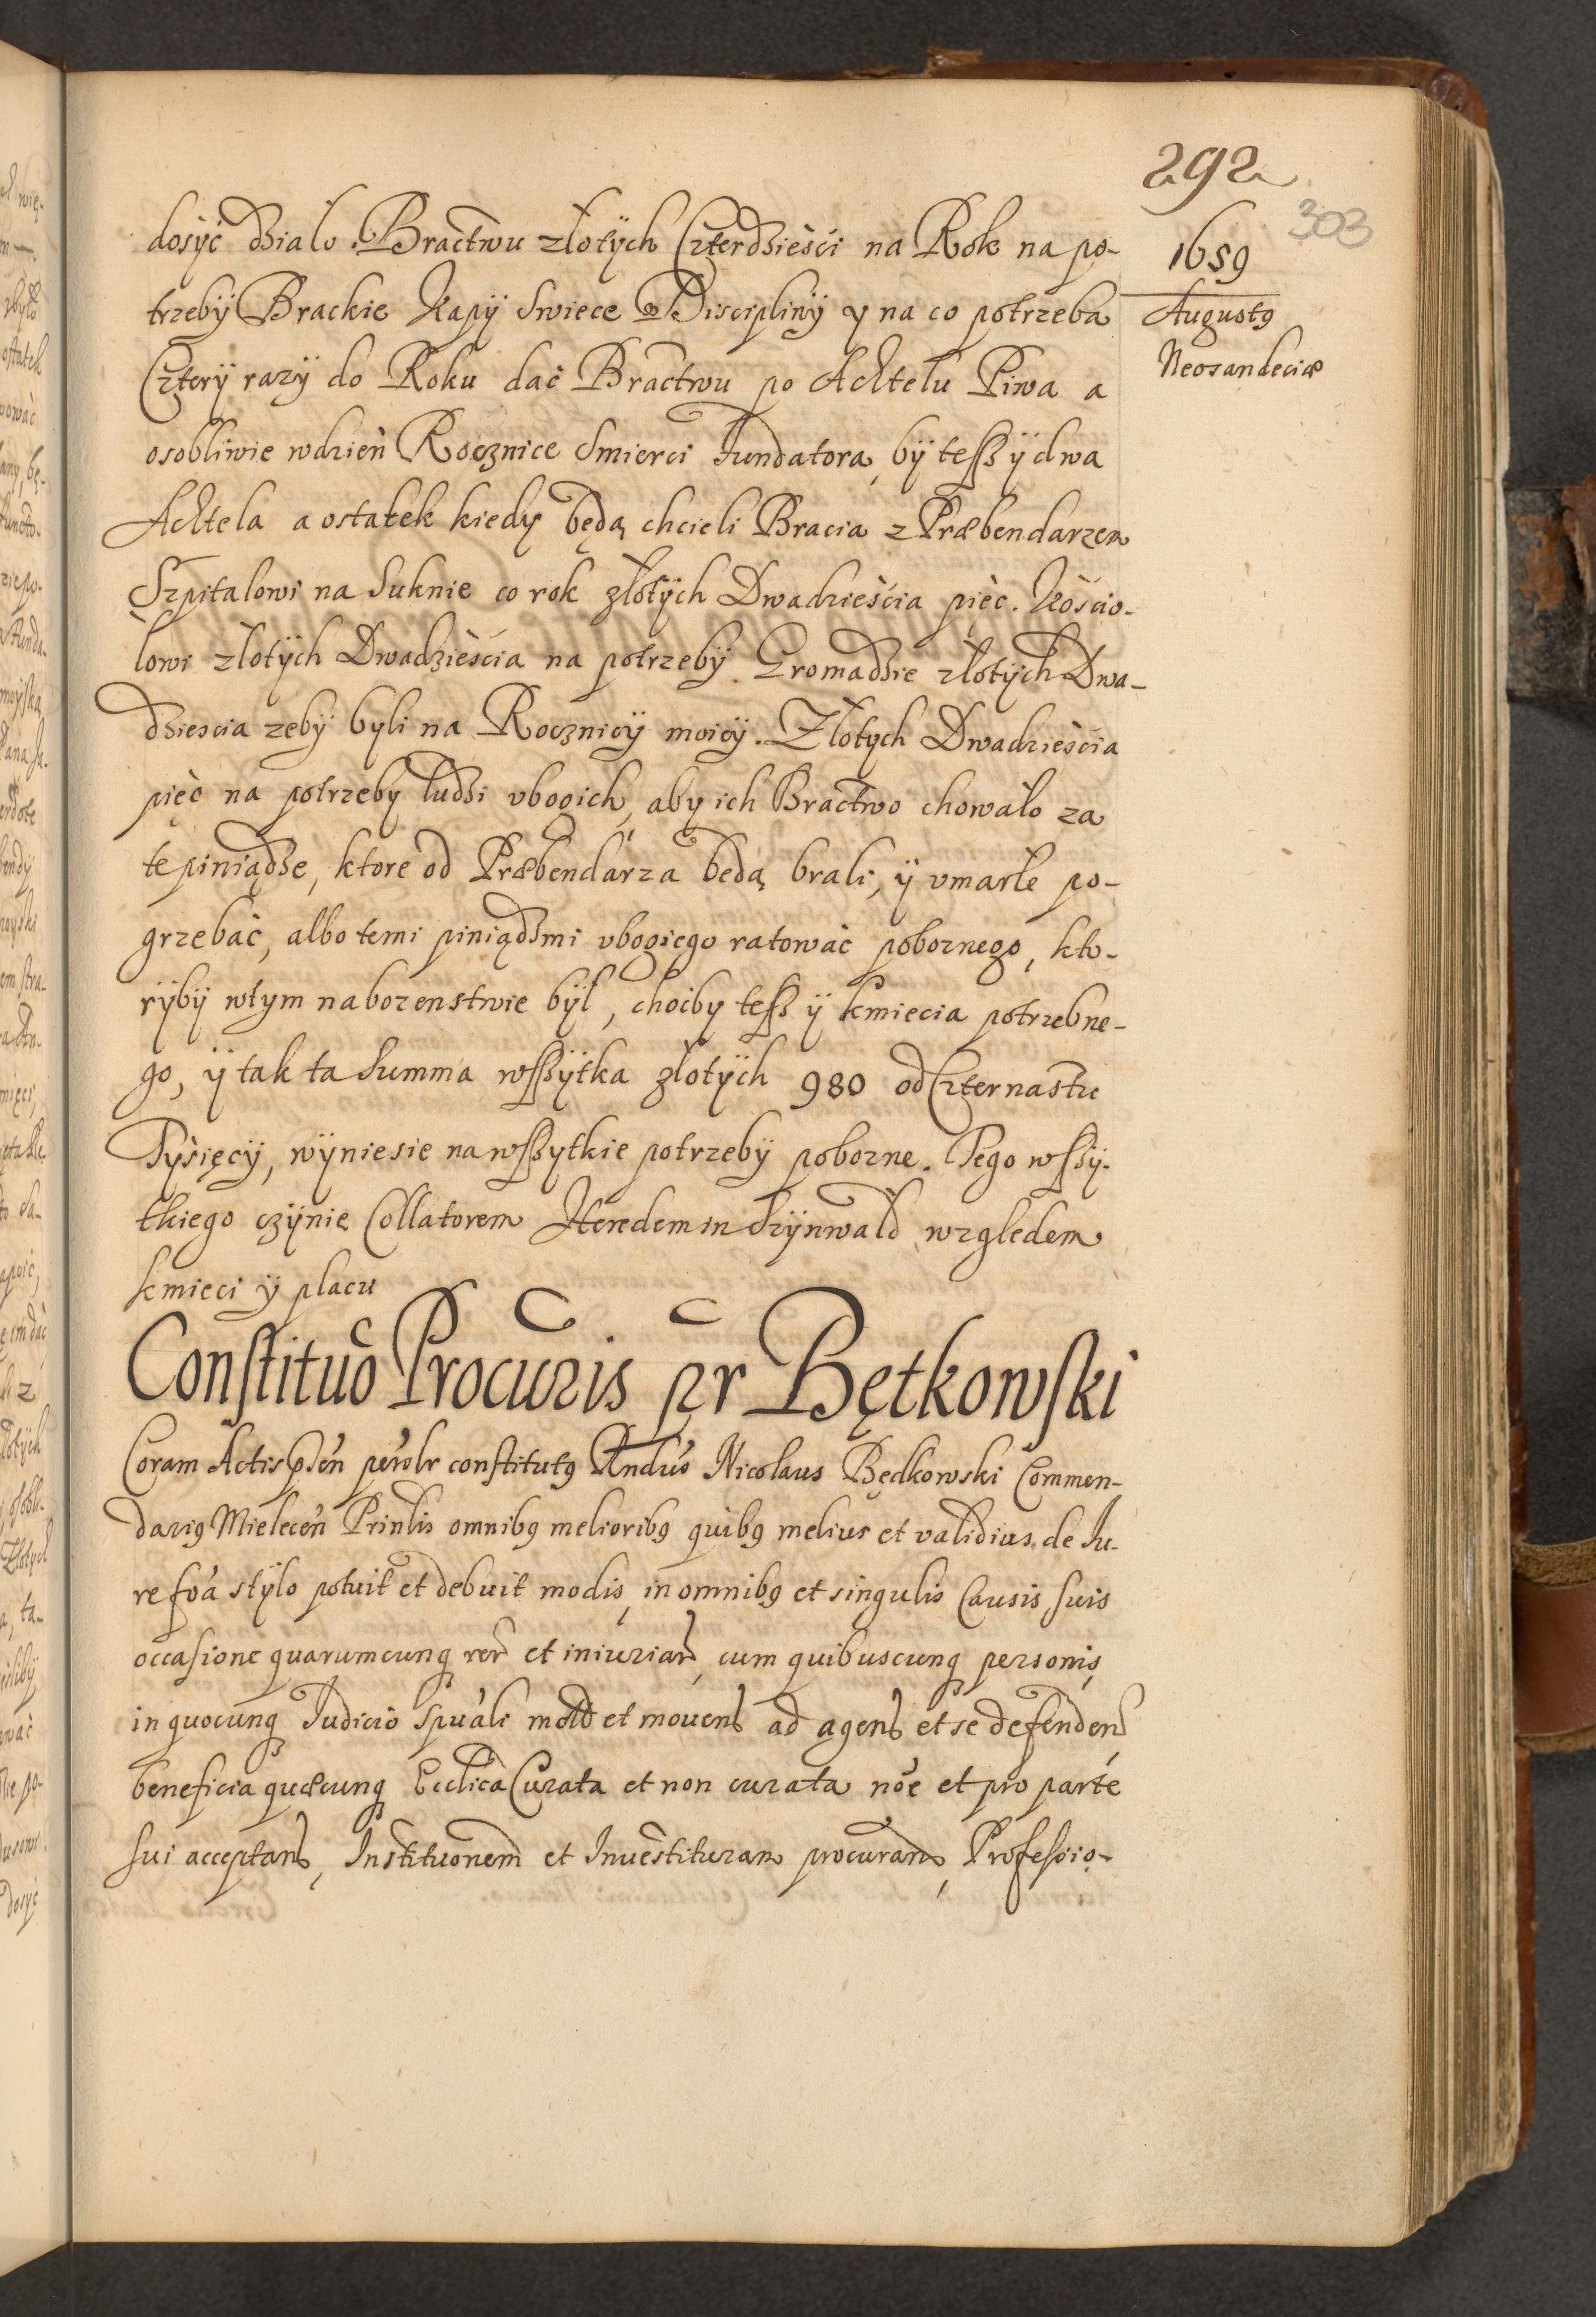 292
303
1659
Augustꝯ
Neosandeciæ
dosyć działo. Bractwu złotÿch Czterdzieśći na Rok na po-
trzebÿ Brackie Kapÿ Swiece Disciplinÿ y na co potrzeba
Czterÿ razÿ do Roku dać Bractwu po Achtelu Piwa a
osobliwie wdzień Rocznice Smierci Fundatora, bÿ teſz ÿ dwa
Achtela a ostatek kiedy będą chcieli Bracia z Præbendarzem
Szpitalowi na Suknie co rok złotÿch Dwadzieścia pięć. Kościo-
łowi złotÿch Dwadzieścia na potrzebÿ. Gromadzie złotÿch Dwa-
dziescia zebÿ byli na Rocznicÿ moiÿ. Złotych Dwadzieścia
pięć na potrzeby ludzi vbogich, aby ich Bractwo chowało za
te piniądze, ktore od Præbendarza będą brali, ÿ vmarłe po-
grzebać, albo temi piniądzmi vbogiego ratować pobożnego, kto-
rÿbÿ wtym nabozenstwie bÿł, choćby teſz ÿ kmiecia potrzebne-
go, ÿ tak ta Summa wſzÿtka złotÿch 980 od Czternastu
Tysięcÿ, wÿniesie na wſzytkie potrzebÿ pobozne. Tego wſzÿ-
tkiego czÿnie Collatorem Heredem in Szÿnwałd względem
kmieci ÿ placu
Conſtituõ Procuris pr Bętkowſki
Coram Actis pſen perſolr conſtitutꝯ Rndus Nicolaus Będkowski Commen-
dariꝯ Mielecen Prinlis omnibꝯ melioribꝯ quibꝯ melius et validius de Iu-
re foa stÿlo potuit et debuit modis, in omnibꝯ et singulis Causis ſuis
occaſione quarumcunq rer et iniuriar, cum quibuscunq personis,
in quocunq Iudicio Spuali mot et mouend ad agend et se defendend
beneficia quæcunq Ecclica Curata et non curata noe et pro parte
ſui acceptand, Institutionem et Inuestituram procurand, Profeſsio-